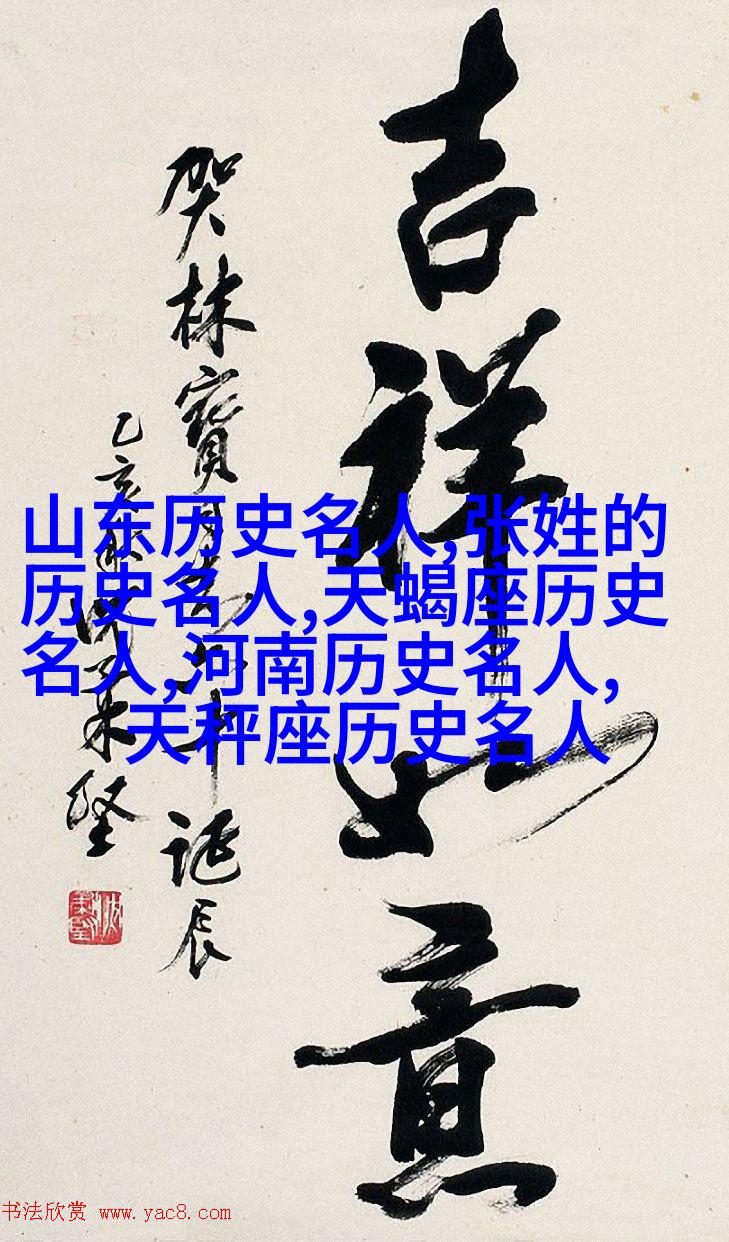 吉祥如意
贺林宝
诞辰
乙亥
山东历史名人,张姓的
历史名人,天蝎座历史
名人,河南历史名人,
天秤座历史名人
书法欣赏 www.yac8.com